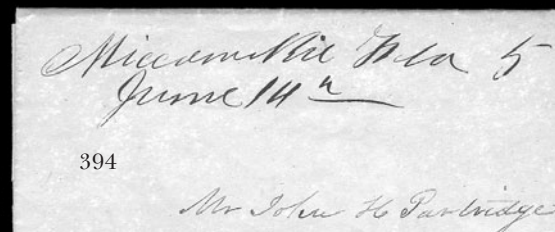 Miccosukie Fla 5
June 14th
394
Mr John H Partridge